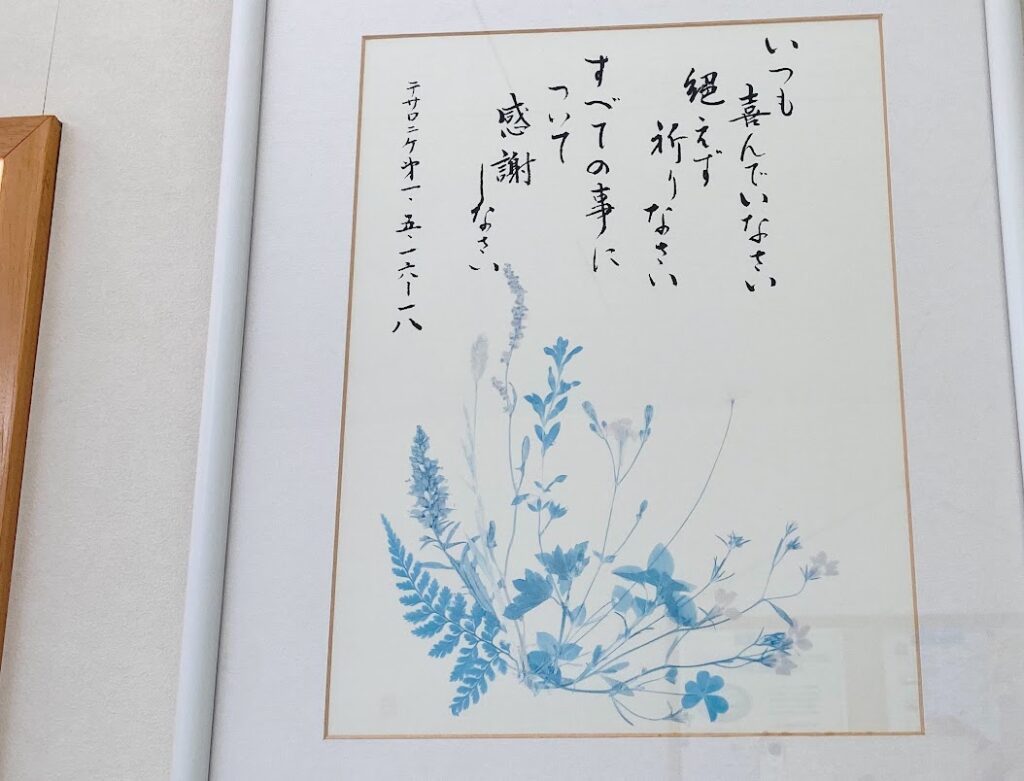 いつも
喜んでいなさい
絶えず
祈りなさい
すべての事に
ついて
感謝
しなさい
テサロニケ第一、五、一六ー一八